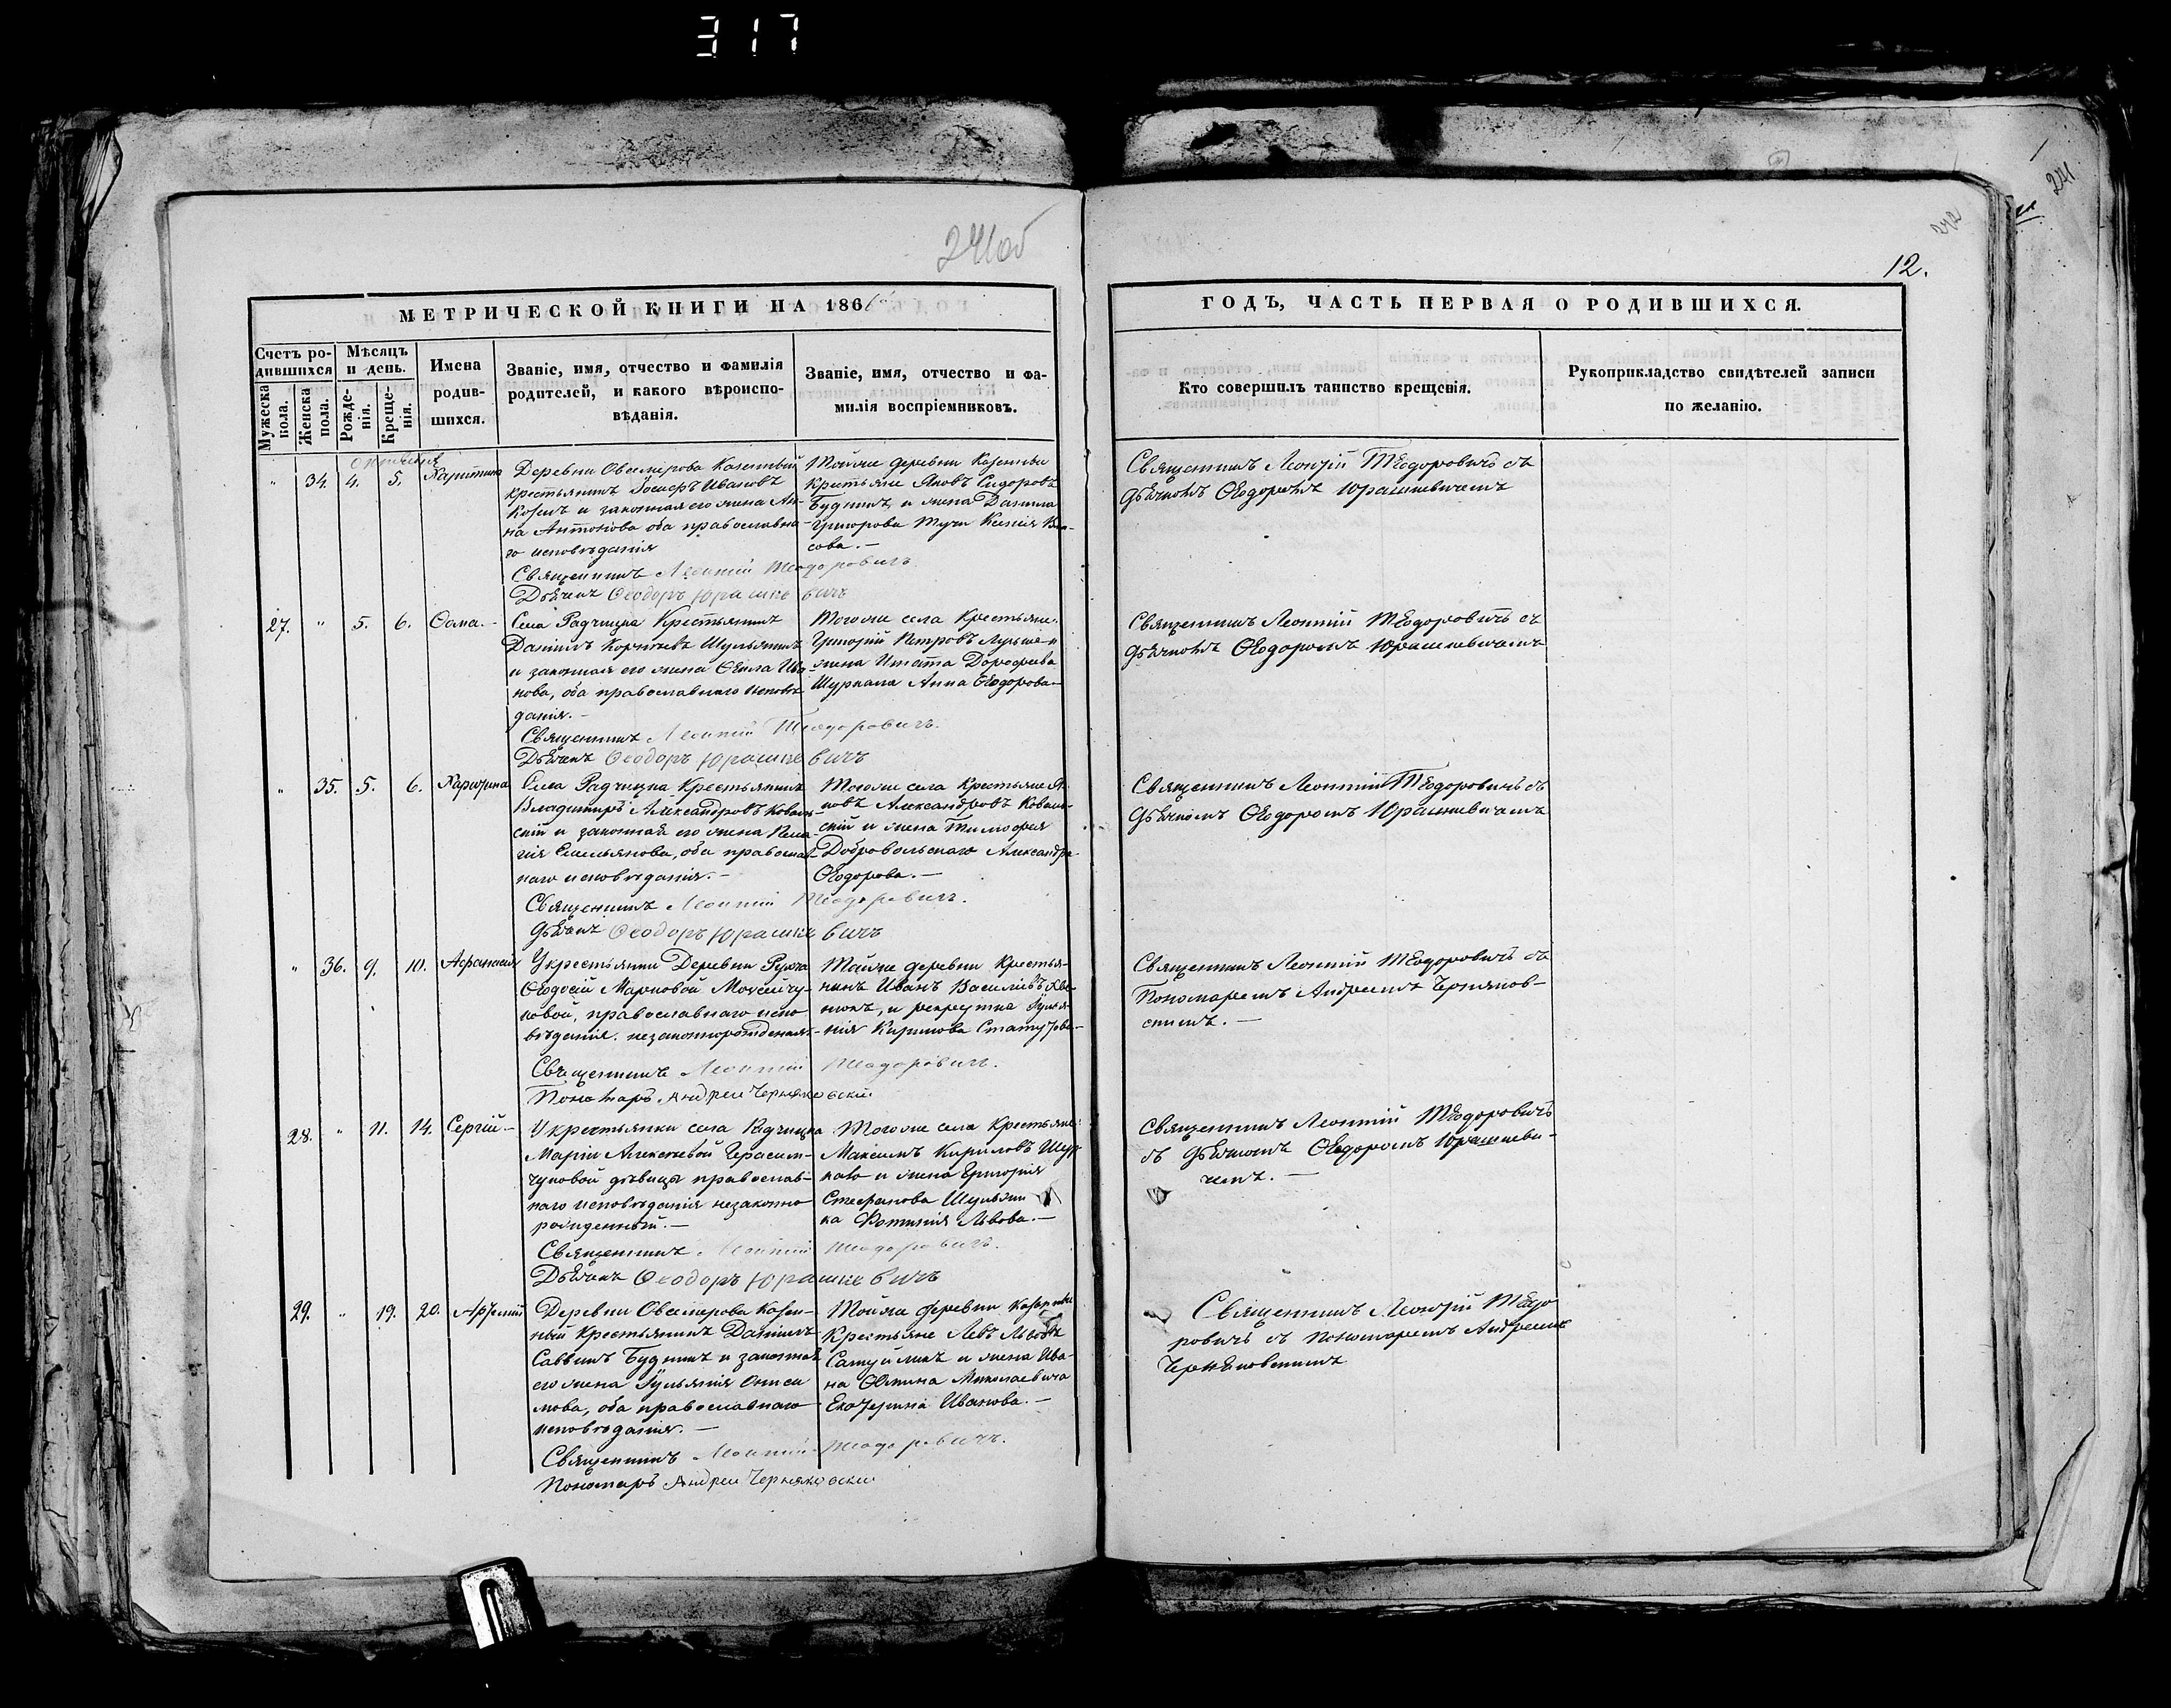 317
241об
241
242
12.
МЕТРИЧЕСКОЙ КНИГИ НА 1866
ГОДЪ, ЧАСТЬ ПЕРВАЯ О РОДИВШИХСЯ.
Счетъ ро-
дившихся
Мужеска
пола.
Женска
пола.
Мѣсяцъ
и день.
Рожде-
нія.
Креще-
нія.
Имена
родив-
шихся.
Званіе, имя, отчество и фамилія
родителей, и какого вѣроиспо-
вѣданія.
Званіе, имя, отчество и фа-
милія воспріемниковъ.
Кто совершилъ таинство крещенія.
Рукоприкладство свидѣтелей записи
по желанію.
октября
" 34. 4. 5. Харитина
Деревни Овсемерова Казенный
крестьянинъ Іосифъ Ивановъ
и законная его жена Ан-
на Антонова оба православна-
го исповѣданія
Священникъ Леонтій Теодоровичъ
Дьячекъ Ѳеодоръ Юрашкевичъ
Тойже деревни Казенные
Крестьяне Яковъ Сидоровъ
Будникъ и жена Данила
Григорова Ксенія Вла-
сова.—
Священникъ Леонтій Теодоровичъ съ
дьячкомъ Ѳеодоромъ Юрашкевичемъ
27. " 5. 6. Ѳома.-
Села Радчицка Крестьянинъ
Даніилъ Корнѣевъ Шульжикъ
и законная его жена Ива-
нова, оба православнаго исповѣ-
данія.—
Священникъ Леонтій Теодоровичъ.
Дьячекъ Ѳеодоръ Юрашкевичъ
Тогоже села Крестьяне.
Григорій Петровъ и
жена Игната Дорофеева
Шуркала Анна Ѳеодорова—
Священникъ Леонтій Теодоровичъ съ
дьячкомъ Ѳеодоромъ Юрашкевичемъ
" 35. 5. 6. Харитина
Села Радчицка Крестьянинъ
Владиміръ Александровъ Коваль-
скій и законная его жена Пела-
гія Емельянова, оба православ-
наго исповѣданія.—
Священникъ Леонтій Теодоровичъ.
дьячекъ Ѳеодоръ Юрашкевичъ
Тогоже села Крестьяне Я-
ковъ Александровъ Коваль-
скій и жена Тимофея
Добровольскаго Александра
Ѳеодорова.—
Священникъ Леонтій Теодоровичъ съ
дьячкомъ Ѳеодоромъ Юрашкевичемъ
" 36. 9. 10. Афанасія
У крестьянки Деревни Рухча
Ѳеодосіи Марковой Мокейчу-
ковой, православнаго испо
вѣданія. незаконнорожденная—
Священникъ Леонтій Теодоровичъ.
Пономаръ Андрей Черняковскій
Тойже деревни Крестья-
нинъ Иванъ Василіевъ
и рекрутка Іулья-
нія Кирикова
Священникъ Леонтій Теодоровичъ съ
Пономаремъ Андреемъ Черняков-
скимъ.—
28. " 11. 14. Сергій—
У крестьянки села Радчицка
Маріи Алексѣевой Герасим-
чуковой дѣвицы православ-
наго исповѣданія незаконно
рожденный.—
Священникъ Леонтій Теодоровичъ.
Дьячекъ Ѳеодоръ Юрашкевичъ
Тогоже села Крестьяне:
Максимъ Кириловъ Шур
кало и жена Григорія
Стефанова Шульжи
ка Фотинія Львова.—
Священникъ Леонтій Теодоровичъ
съ дьячкомъ Ѳеодоромъ Юрашкеви-
чемъ.—
29. " 19. 20. Артемій
Деревни Овсемерова Казен-
ный Крестьянинъ Даніилъ
Саввинъ Будникъ и законная
его жена ІульяніяОниси
мова, оба православнаго
исповѣданія.—
Священникъ Леонтій Теодоровичъ.
Пономаръ Андрей Черняковскій
Тойже деревни Казенные
Крестьяне Левъ Львовъ
Самуйликъ и жена Ива-
на Николаевича
Екатерина Иванова.—
Священникъ Леонтій Теодо
ровичъ съ пономаремъ Андреемъ
Черняковскимъ